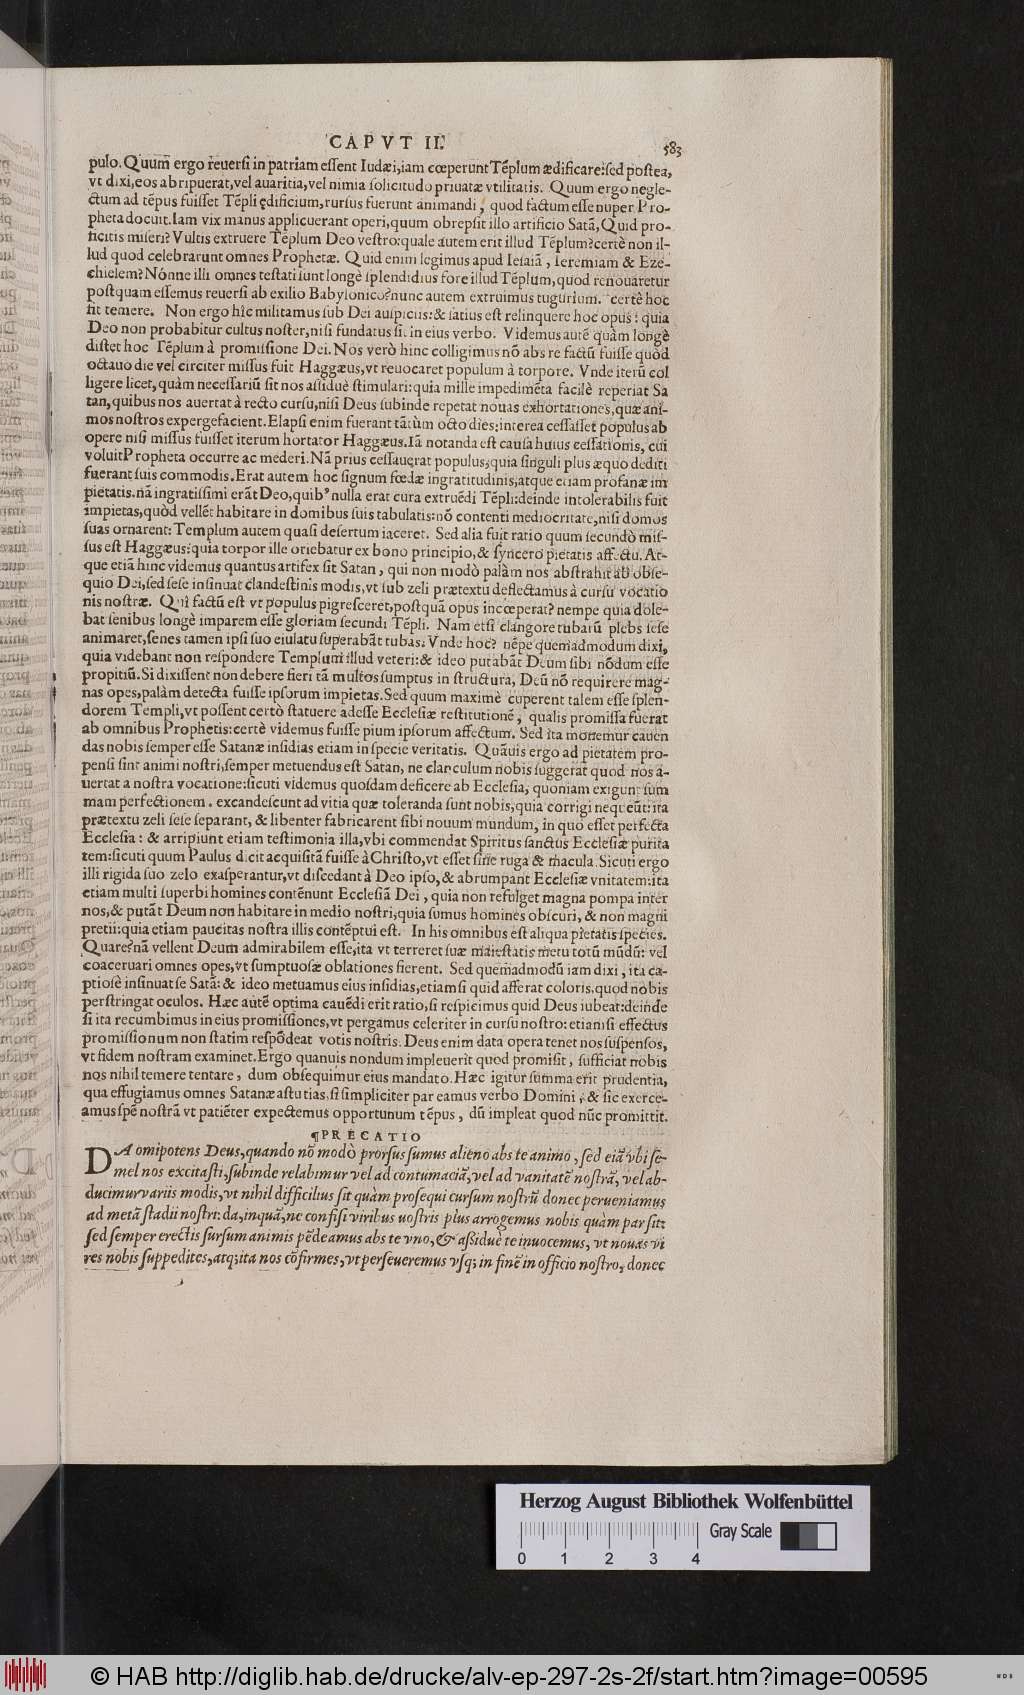 CAPVT II.
583
pulo. Quum ergo reuersi in patriam essent Iudæi, iam cœperunt Tẽplum ædificare: sed postea,
vt dixi, eos abripuerat, vel auaritia, vel nimia solicitudo priuatæ vtilitatis. Quum ergo negle-
ctum ad tẽpus fuisset Tẽpli ędificium, rursus fuerunt animandi, quod factum esse nuper Pro-
pheta docuit. Iam vix manus applicuerant operi, quum obrepsit illo artificio Satã, Quid pro-
ficitis miseri? Vultis extruere Tẽplum Deo vestro: quale autem erit illud Tẽplum? certè non il-
lud quod celebrarunt omnes Prophetæ. Quid enim legimus apud Iesaiã, Ieremiam & Eze-
chielem? Nónne illi omnes testati sunt longè splendidius fore illud Tẽplum, quod renouaretur
postquam essemus reuersi ab exilio Babylonico? nunc autem extruimus tugurium. certè hoc
fit temere. Non ergo hîc militamus sub Dei auspiciis: & satius est relinquere hoc opus: quia
Deo non probabitur cultus noster, nisi fundatus sit in eius verbo. Videmus autẽ quàm longè
distet hoc Tẽplum à promissione Dei. Nos verò hinc colligimus nõ abs re factũ fuisse quòd
octauo die vel circiter missus fuit Haggæus, vt reuocaret populum à torpore. Vnde iterũ col
ligere licet, quàm necessariũ sit nos assiduè stimulari: quia mille impedimẽta facilè reperiat Sa
tan, quibus nos auertat à recto cursu, nisi Deus subinde repetat nouas exhortationes, quæ ani-
mos nostros expergefacient. Elapsi enim fuerant tãtùm octo dies: interea cessasset populus ab
opere nisi missus fuisset iterum hortator Haggæus. Iã notanda est causa huius cessationis, cui
voluit Propheta occurrere ac mederi. Nã prius cessauerat populus, quia singuli plus æquo dediti
fuerant suis commodis. Erat autem hoc signum fœdæ ingratitudinis, atque etiam profanæ im
pietatis. nã ingratissimi erãt Deo, quibꝰ nulla erat cura extruẽdi Tẽpli: deinde intolerabilis fuit
impietas, quòd vellẽt habitare in domibus suis tabulatis: nõ contenti mediocritate, nisi domos
suas ornarent: Templum autem quasi desertum iaceret. Sed alia fuit ratio quum secundò mis-
sus est Haggæus: quia torpor ille oriebatur ex bono principio, & syncero pietatis affectu. At-
que etiã hinc videmus quantus artifex sit Satan, qui non modò palàm nos abstrahit ab obse-
quio Dei, sed sese insinuat clandestinis modis, vt sub zeli prætextu deflectamus à cursu vocatio
nis nostræ. Quî factũ est vt populus pigresceret, postquã opus incœperat? nempe quia dole-
bat senibus longè imparem esse gloriam secundi Tẽpli. Nam etsi clangore tubarũ plebs sese
animaret, senes tamen ipsi suo eiulatu superabãt tubas. Vnde hoc? nẽpe quemadmodum dixi,
quia videbant non respondere Templum illud veteri: & ideo putabãt Deum sibi nõdum esse
propitiũ. Si dixissent non debere fieri tã multos sumptus in structura, Deũ nõ requirere mag-
nas opes, palàm detecta fuisse ipsorum impietas. Sed quum maximè cuperent talem esse splen-
dorem Templi, vt possent certò statuere adesse Ecclesiæ restitutionẽ, qualis promissa fuerat
ab omnibus Prophetis: certè videmus fuisse pium ipsorum affectum. Sed ita monemur cauen
das nobis semper esse Satanæ insidias etiam in specie veritatis. Quãuis ergo ad pietatem pro-
pensi sint animi nostri, semper metuendus est Satan, ne clanculum nobis suggerat quod nos a-
uertat a nostra vocatione: sicuti videmus quosdam deficere ab Ecclesia, quoniam exigunt sum
mam perfectionem. excandescunt ad vitia quæ toleranda sunt nobis, quia corrigi nequeũt: ita
prætextu zeli sese separant, & libenter fabricarent sibi nouum mundum, in quo esset perfecta
Ecclesia: & arripiunt etiam testimonia illa, vbi commendat Spiritus sanctus Ecclesiæ purita
tem: sicuti quum Paulus dicit acquisitã fuisse à Christo, vt esset sine ruga & macula. Sicuti ergo
illi rigida suo zelo exasperantur, vt discedant à Deo ipso, & abrumpant Ecclesiæ vnitatem: ita
etiam multi superbi homines contẽnunt Ecclesiã Dei, quia non refulget magna pompa inter
nos, & putãt Deum non habitare in medio nostri, quia sumus homines obscuri, & non magni
pretii: quia etiam paucitas nostra illis contẽptui est. In his omnibus est aliqua pietatis species.
Quare? nã vellent Deum admirabilem esse, ita vt terreret suæ maiestatis metu totũ mũdũ: vel
coaceruari omnes opes, vt sumptuosæ oblationes fierent. Sed quemadmodũ iam dixi, ita ca-
ptiosè insinuat se Satã: & ideo metuamus eius insidias, etiamsi quid afferat coloris, quod nobis
perstringat oculos. Hæc autẽ optima cauẽdi erit ratio, si respicimus quid Deus iubeat: deinde
si ita recumbimus in eius promissiones, vt pergamus celeriter in cursu nostro: etiamsi effectus
promissionum non statim respõdeat votis nostris. Deus enim data opera tenet nos suspensos,
vt fidem nostram examinet. Ergo quanuis nondum impleuerit quod promisit, sufficiat nobis
nos nihil temere tentare, dum obsequimur eius mandato. Hæc igitur summa erit prudentia,
qua effugiamus omnes Satanæ astutias, si simpliciter pareamus verbo Domini, & sic exerce-
amus spẽ nostrã vt patiẽter expectemus opportunum tẽpus, dũ impleat quod nũc promittit.
¶PRECATIO
DA omipotens Deus, quando nõ modò prorsus sumus alieno abs te animo, sed eiã vbi se-
mel nos excitasti, subinde relabimur vel ad contumaciã, vel ad vanitatẽ nostrã, vel ab-
ducimur variis modis, vt nihil difficilius sit quàm prosequi cursum nostrũ donec perueniamus
ad metã stadii nostri: da, inquã, ne confisi viribus nostris plus arrogemus nobis quàm par sit:
sed semper erectis sursum animis pẽdeamus abs te vno, & assiduè te inuocemus, vt nouas vi
res nobis suppedites, atq; ita nos cõfirmes, vt perseueremus vsq; in finẽ in officio nostro, donec
Herzog August Bibliothek Wolfenbüttel
Gray Scale
0 1 2 3 4
© HAB http://diglib.hab.de/drucke/alv-ep-297-2s-2f/start.htm?image=00595
WDB